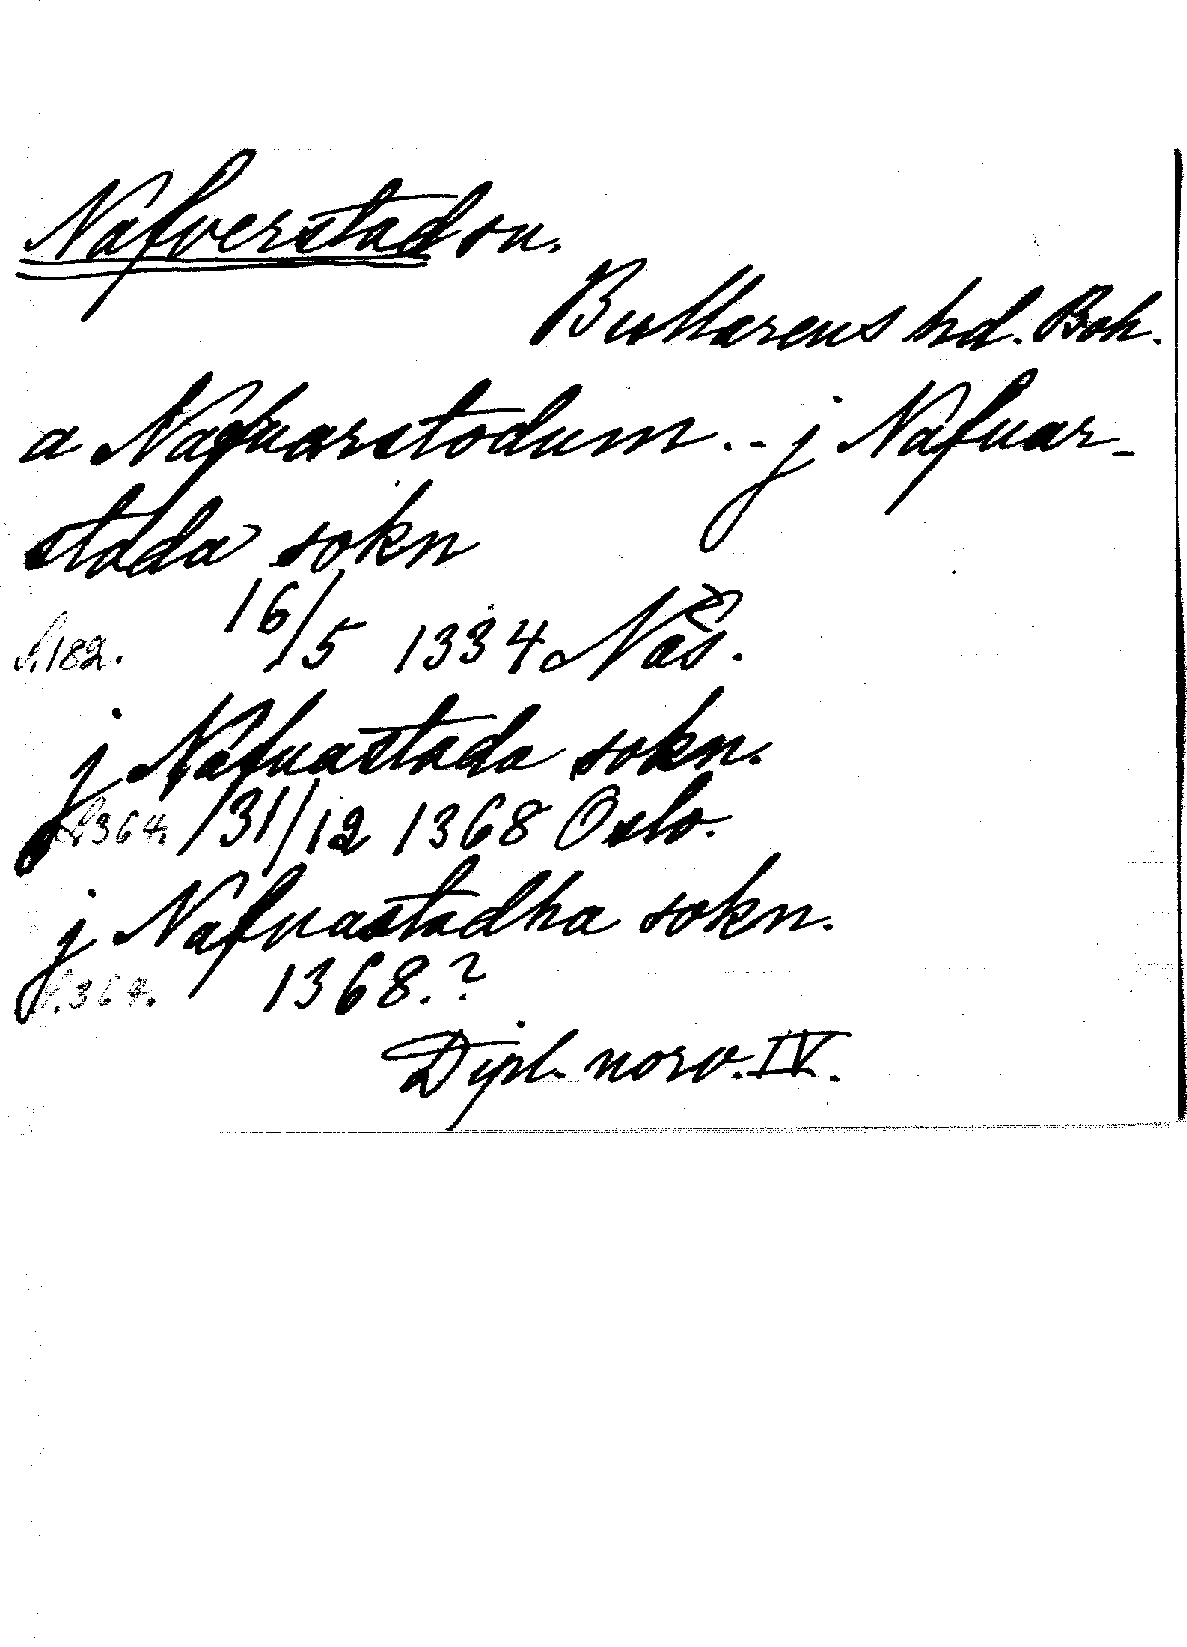 Nafverstad sn.
Bullarens hd. Boh.
a Nafuarstodum .. j Nafuar-
stada sokn
S. 182. 16/5 1334 Näs.
j Nafuastada sokn.
S. 364. 31/12 1368 Oslo.
j Nafuastadha sokn.
S. 364. 1368.?
Dipl. norv. IV.